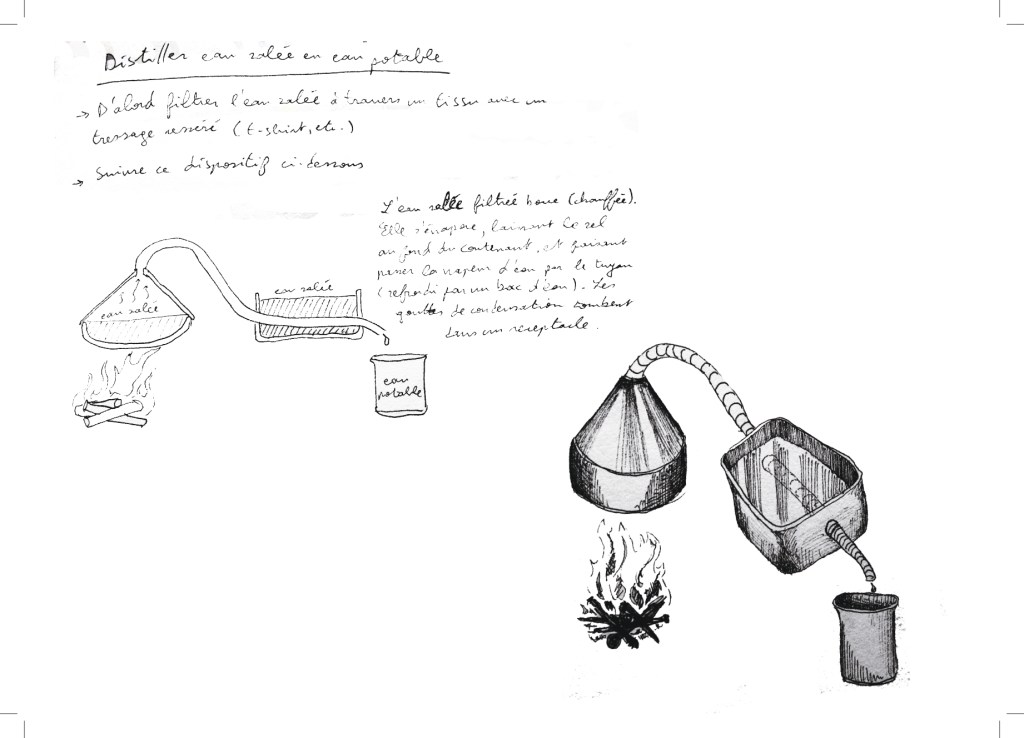 Distiller eau salée en eau potable
→ D'abord filtrer l'eau salée à travers un tissu avec un
tressage resserré (t-shirt, etc.)
→ Suivre ce dispositif ci-dessous
L'eau salée filtrée boue (chauffée).
Elle s'évapore, laissant le sel
au fond du contenant, et faisant
passer la vapeur d'eau par le tuyau
(refroidi par un bac d'eau). Les
gouttes de condensation tombent
dans un réceptacle.
eau salée
eau salée
eau
potable